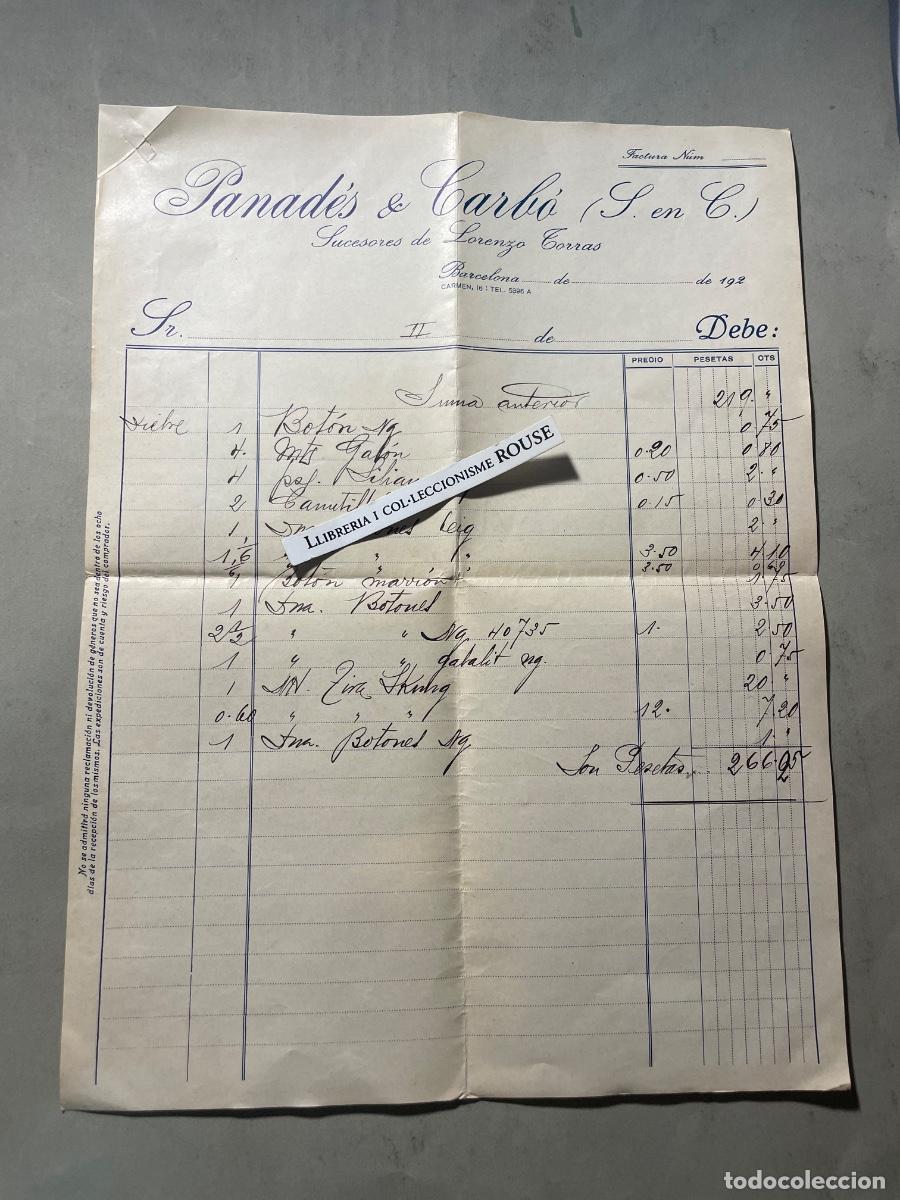 Factura Núm
Panadés & Carbó (S. en C.)
Sucesores de Lorenzo Torras
Barcelona de de 192
CARMEN, 16 : TEL. 5896 A
Sr. II de Debe:
PRECIO PESETAS CTS
Suma anterior 219 "
1 Botón Ng 0 75
4 Mts Galón 0.20 0 80
4 0.50 2 "
2 0.15 0 30
1 2 "
1 " " 3.50 4 10
Botón marrón 3.50
1 75
1 Dna. Botones 3.50
2 1/2 " " Ng 40735 1. 2 50
1 " " galalit ng. 0 75
1 Mt. Tira Skung 20 "
0.60 " " " 12. 7.20
1 Dna. Botones Ng 1. "
Son Pesetas 266.
LLIBRERIA I COL·LECCIONISME ROUSE
No se admitirá ninguna reclamación ni devolución de géneros que no sea dentro de los ocho
días de la recepción de los mismos. Las expediciones son de cuenta y riesgo del comprador.
todocoleccion